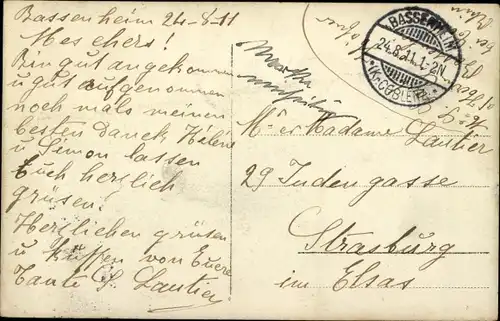 Bassenheim 24-8-11
Mes chers!
Bin gut angekommen
u gut aufgenommen
noch mals meinen
besten danck Hélène
u Simon lassen
Euch herzlich
grüsen!
Herzlichen grüsen
u Küssen von Euere
Tante S. Lautier
BASSENHEIM
24.8.11.1-2N.
(KR. COBLENZ)
Mr et Madame Lautier
29 Judengasse
Strasburg
im Elsas